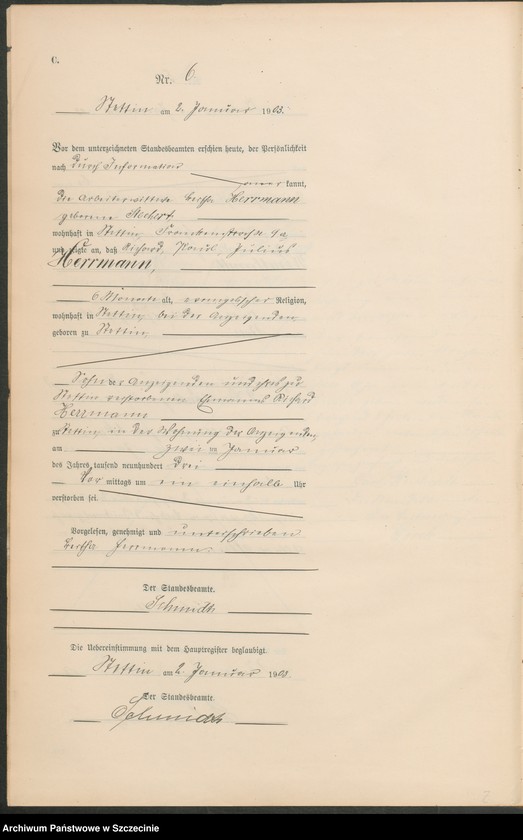 C.
Nr. 6
Stettin am 2. Januar 1903.
Vor dem unterzeichneten Standesbeamten erschien heute, der Persönlichkeit
nach durch Information
kannt,
die Arbeiterwittwe Bertha Herrmann
geborene
wohnhaft in Stettin,
und zeigte an, daß Richard, Paul, Julius
Herrmann,
6 Monate alt, evangelischer Religion,
wohnhaft in Stettin, bei der Anzeigenden
geboren zu Stettin,
Sohn der Anzeigenden und ihres zu
Stettin verstorbenen Ehemannes Richard
Herrmann
zu Stettin, in der Wohnung der Anzeigenden,
am zwei ten Januar
des Jahres tausend neunhundert drei
Vor mittags um ein einhalb Uhr
verstorben sei.
Vorgelesen, genehmigt und unterschrieben
Bertha Herrmann.
Der Standesbeamte.
Schmidt
Die Uebereinstimmung mit dem Hauptregister beglaubigt.
Stettin am 2. Januar 1903
Der Standesbeamte.
Schmidt
Archiwum Państwowe w Szczecinie